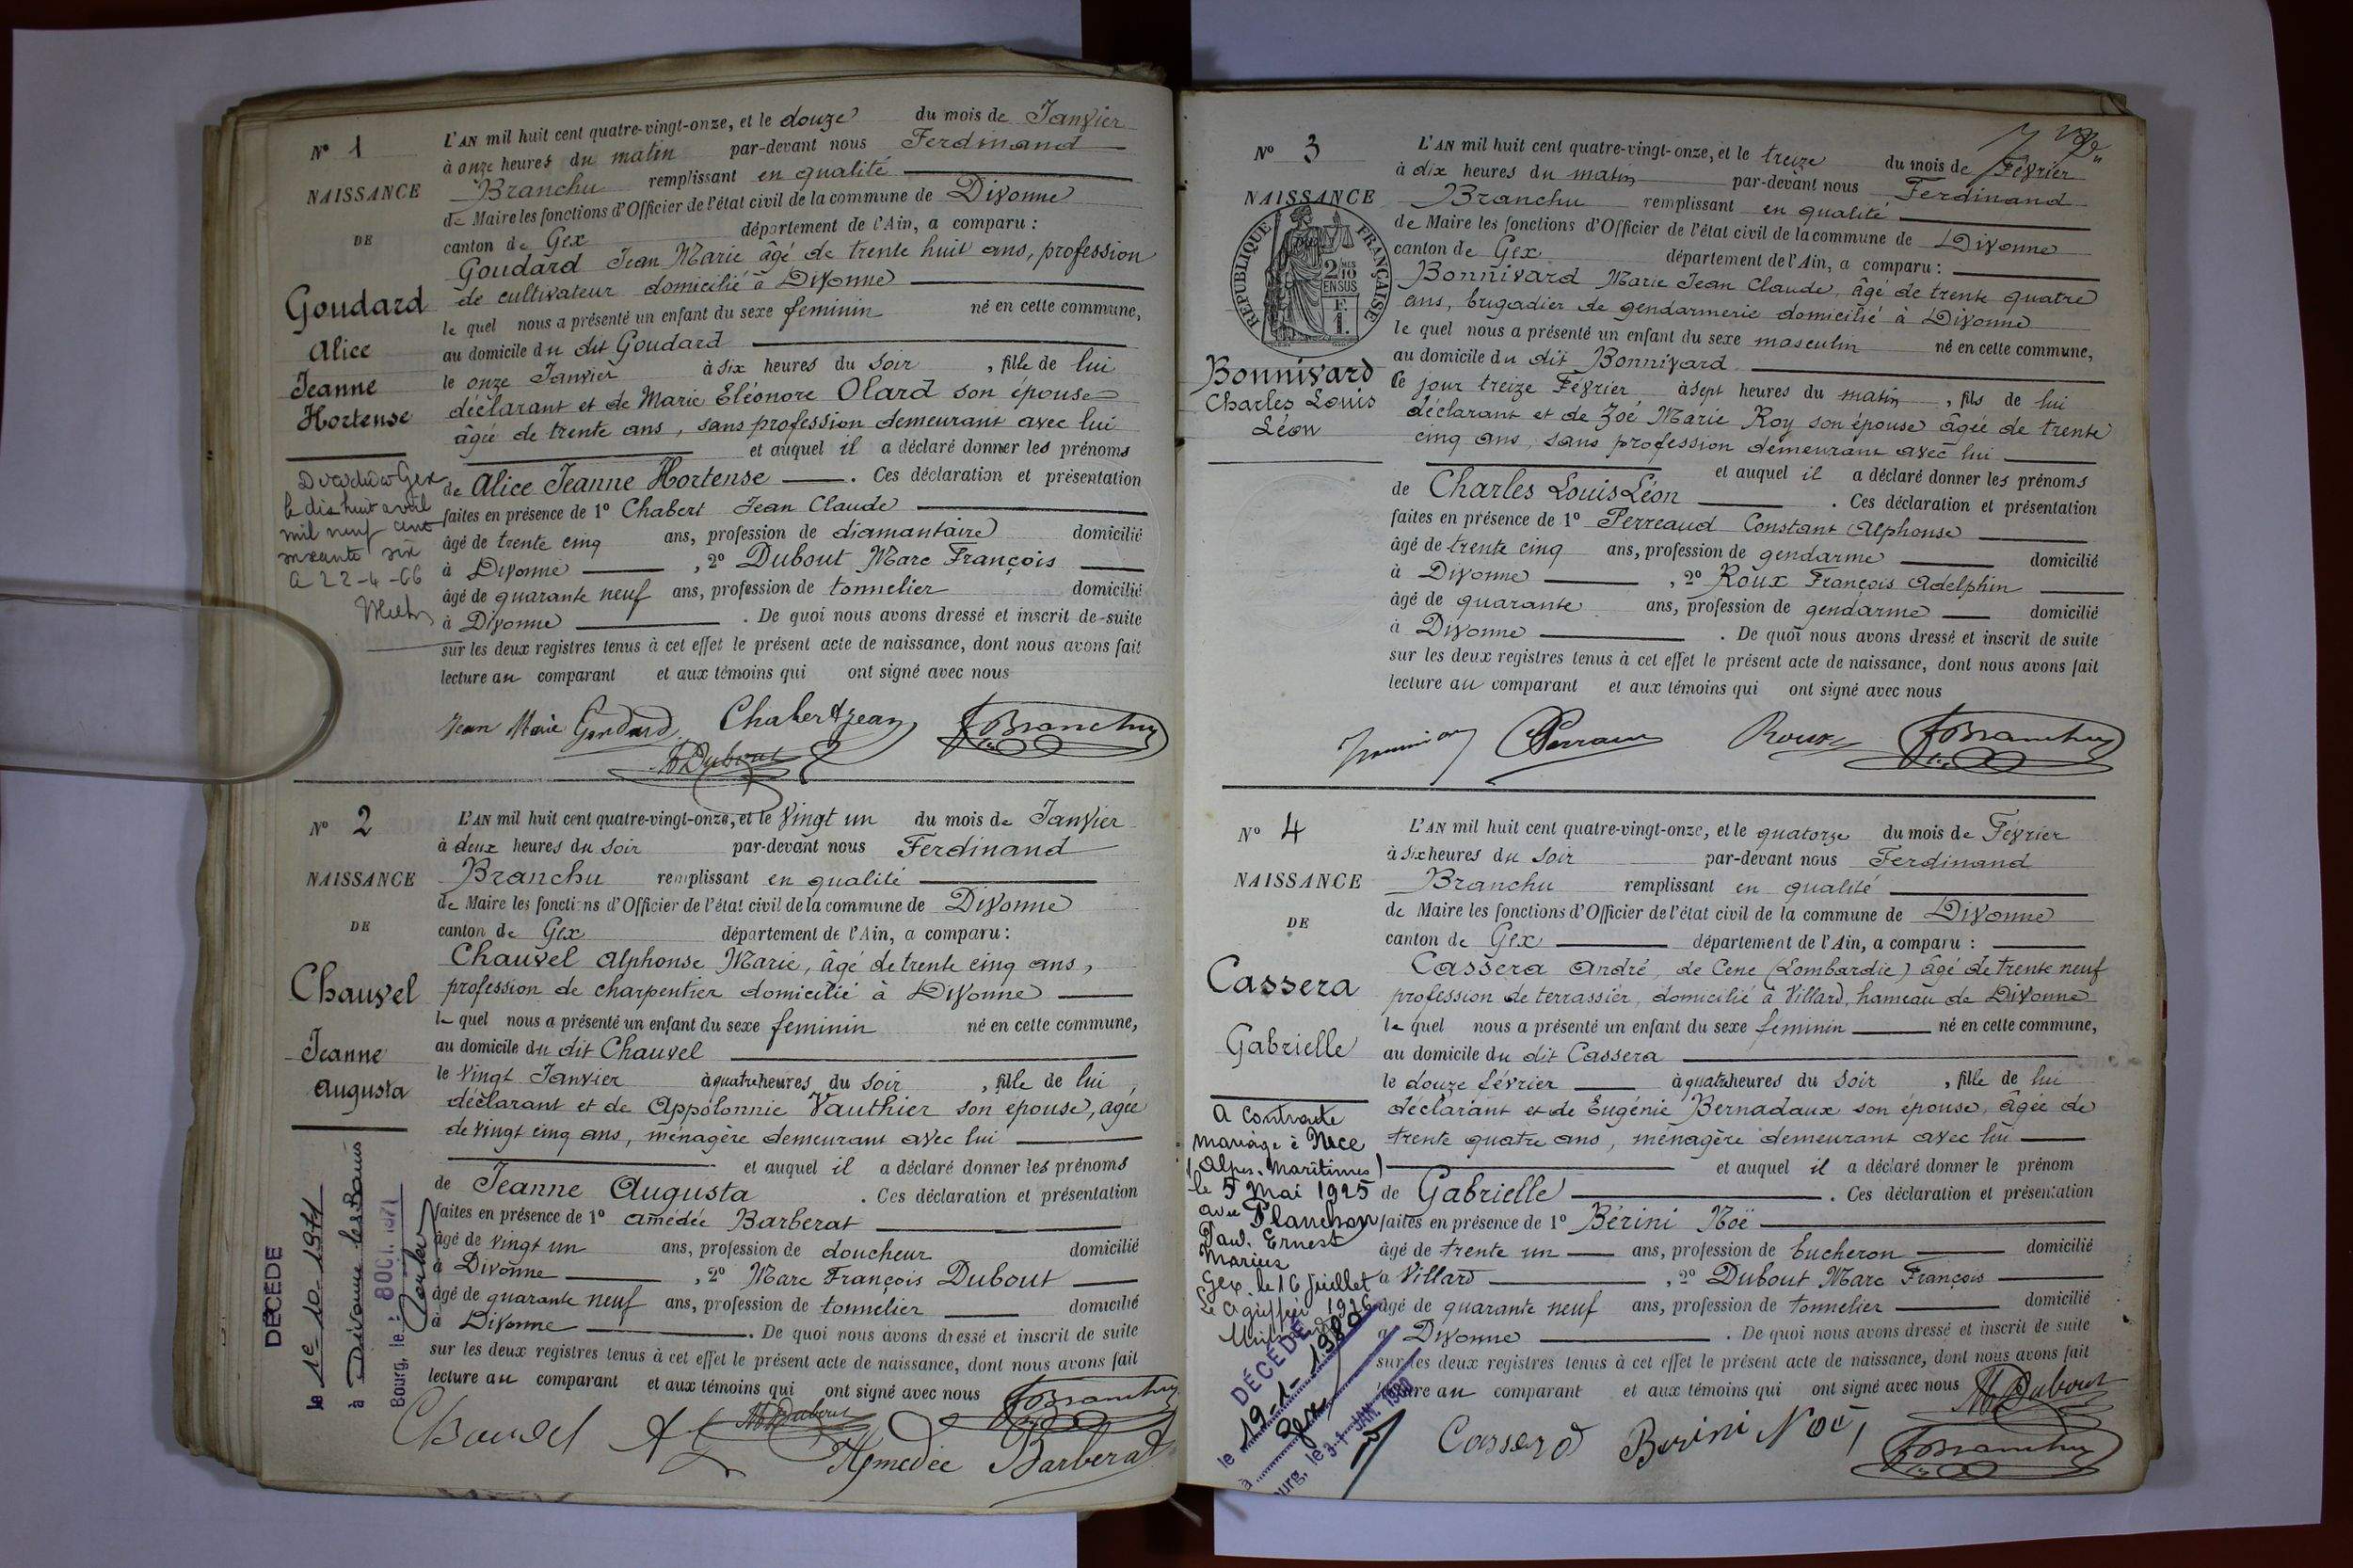 N° 1
NAISSANCE
DE
Goudard
Alice
Jeanne
Hortense
Décédée à Gex
le dix huit avril
mil neuf cent
soixante six
22-4-66
L'AN mil huit cent quatre-vingt-onze, et le douze du mois de Janvier
à onze heures du matin par-devant nous Ferdinand
Branchu remplissant en qualité
de Maire les fonctions d'Officier de l'état civil de la commune de Divonne
canton de Gex département de l'Ain, a comparu :
Goudard Jean Marie âgé de trente huit ans, profession
de cultivateur domicilié à Divonne
le quel nous a présenté un enfant du sexe feminin né en cette commune,
au domicile du dit Goudard
le onze Janvier à six heures du soir, fille de lui
déclarant et de Marie Eléonore Olard son épouse
âgée de trente ans, sans profession demeurant avec lui
et auquel il a déclaré donner les prénoms
de Alice Jeanne Hortense. Ces déclaration et présentation
faites en présence de 1° Chabert Jean Claude
âgé de trente cinq ans, profession de diamantaire domicilié
à Divonne, 2° Dubout Marc François
âgé de quarante neuf ans, profession de tonnelier domicilié
à Divonne. De quoi nous avons dressé et inscrit de-suite
sur les deux registres tenus à cet effet le présent acte de naissance, dont nous avons fait
lecture au comparant et aux témoins qui ont signé avec nous
Jean Marie Goudard Chabert Jean FBranchu
M Dubout
N° 2
NAISSANCE
DE
Chauvel
Jeanne
Augusta
DÉCÉDÉ
le 1e-10-1971
à Divonne les Bains
Bourg, le : 8 OCT. 1971
L'AN mil huit cent quatre-vingt-onze, et le vingt un du mois de Janvier
à deux heures du soir par-devant nous Ferdinand
Branchu remplissant en qualité
de Maire les fonctions d'Officier de l'état civil de la commune de Divonne
canton de Gex département de l'Ain, a comparu :
Chauvel Alphonse Marie, âgé de trente cinq ans,
profession de charpentier domicilié à Divonne
le quel nous a présenté un enfant du sexe feminin né en cette commune,
au domicile du dit Chauvel
le vingt Janvier à quatre heures du soir, fille de lui,
déclarant et de Appolonnie Vauthier son épouse, agée
de vingt cinq ans, ménagère demeurant avec lui
et auquel il a déclaré donner les prénoms
de Jeanne Augusta. Ces déclaration et présentation
faites en présence de 1° Amédée Barberat
âgé de vingt un ans, profession de doucheur domicilié
à Divonne, 2° Marc François Dubout
âgé de quarante neuf ans, profession de tonnelier domicilié
à Divonne. De quoi nous avons dressé et inscrit de suite
sur les deux registres tenus à cet effet le présent acte de naissance, dont nous avons fait
lecture au comparant et aux témoins qui ont signé avec nous FBranchu
Chauvel M Dubout Amédée Barberat
N° 3
NAISSANCE
RÉPUBLIQUE FRANÇAISE
2/10 MES
EN SUS
F.
1.
Bonnivard
Charles Louis
Léon
L'AN mil huit cent quatre-vingt-onze, et le treize du mois de Février
à dix heures du matin par-devant nous Ferdinand
Branchu remplissant en qualité
de Maire les fonctions d'Officier de l'état civil de la commune de Divonne
canton de Gex département de l'Ain, a comparu :
Bonnivard Marie Jean Claude, âgé de trente quatre
ans, brigadier de gendarmerie domicilié à Divonne
le quel nous a présenté un enfant du sexe masculin né en cette commune,
au domicile du dit Bonnivard
le jour treize Février à sept heures du matin, fils de lui
déclarant et de Zoé Marie Roy son épouse âgée de trente
cinq ans, sans profession demeurant avec lui
et auquel il a déclaré donner les prénoms
de Charles Louis Léon. Ces déclaration et présentation
faites en présence de 1° Perreaud Constant Alphonse
âgé de trente cinq ans, profession de gendarme domicilié
à Divonne, 2° Roux François Adelphin
âgé de quarante ans, profession de gendarme domicilié
à Divonne. De quoi nous avons dressé et inscrit de suite
sur les deux registres tenus à cet effet le présent acte de naissance, dont nous avons fait
lecture au comparant et aux témoins qui ont signé avec nous
Roux FBranchu
N° 4
NAISSANCE
DE
Cassera
Gabrielle
A contracté
mariage à Nice
(Alpes-Maritimes)
le 5 Mai 1925
avec Planchon
Paul Ernest
Marius
Gex, le 16 Juillet
Le Greffier 1926
DÉCÉDÉ
le 19-1-1980
à Gex
Bourg, le 31 JAN. 1980
L'AN mil huit cent quatre-vingt-onze, et le quatorze du mois de Février
à six heures du soir par-devant nous Ferdinand
Branchu remplissant en qualité
de Maire les fonctions d'Officier de l'état civil de la commune de Divonne
canton de Gex département de l'Ain, a comparu :
Cassera André, de Cene (Lombardie) âgé de trente neuf
profession de terrassier, domicilié à Villard, hameau de Divonne
le quel nous a présenté un enfant du sexe féminin né en cette commune,
au domicile du dit Cassera
le douze février à quatre heures du soir, fille de lui
déclarant et de Eugénie Bernadaux son épouse, âgée de
trente quatre ans, ménagère demeurant avec lui
et auquel il a déclaré donner le prénom
de Gabrielle. Ces déclaration et présentation
faites en présence de 1° Bérini Noë
âgé de trente un ans, profession de bucheron domicilié
à Villard, 2° Dubout Marc François
âgé de quarante neuf ans, profession de tonnelier domicilié
à Divonne. De quoi nous avons dressé et inscrit de suite
sur les deux registres tenus à cet effet le présent acte de naissance, dont nous avons fait
lecture au comparant et aux témoins qui ont signé avec nous M Dubout
Cassera Berini Noë FBranchu